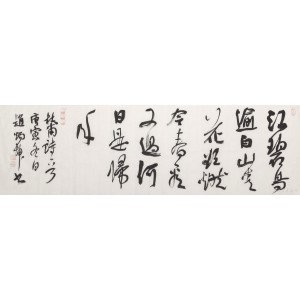 江碧鳥
逾白山青
花欲燃
今春看
又過何
日是歸
年
杜甫詩一首
庚寅冬日